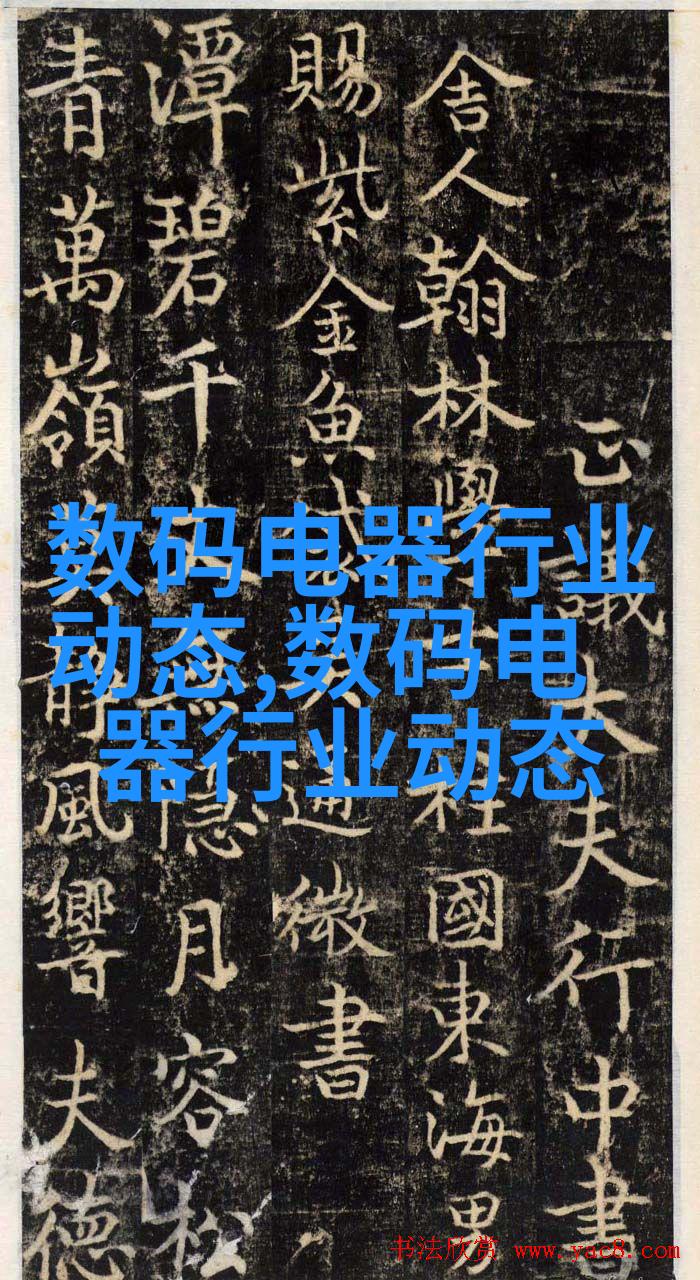 正議大夫行中書
舍人翰林學士柱國東海男
賜紫金魚袋吳通微書
潭碧千丈無隱月容松
青萬嶺安靜風響夫德
数码电器行业
动态,数码电
器行业动态
书法欣赏 www.yac8.com